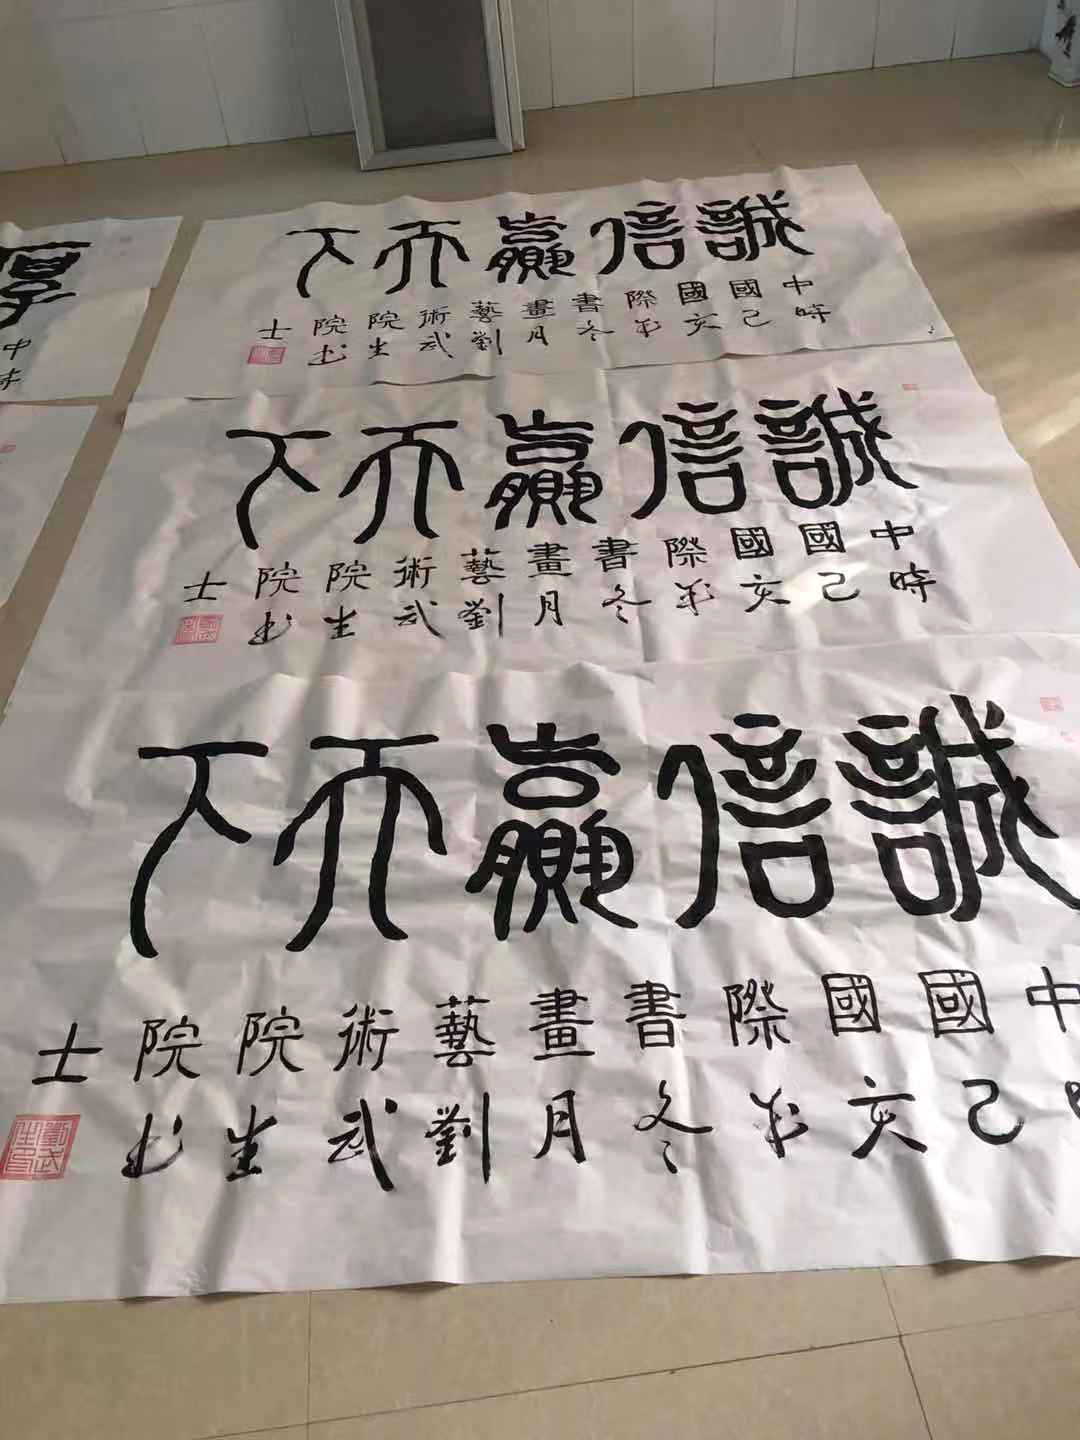 誠信贏天下
中國國際書畫藝術院院士
時己亥年冬月劉武生书
誠信贏天下
中國國際書畫藝術院院士
時己亥年冬月劉武生书
誠信贏天下
中國國際書畫藝術院院士
己亥年冬月劉武生书
劉武生印
厚
中